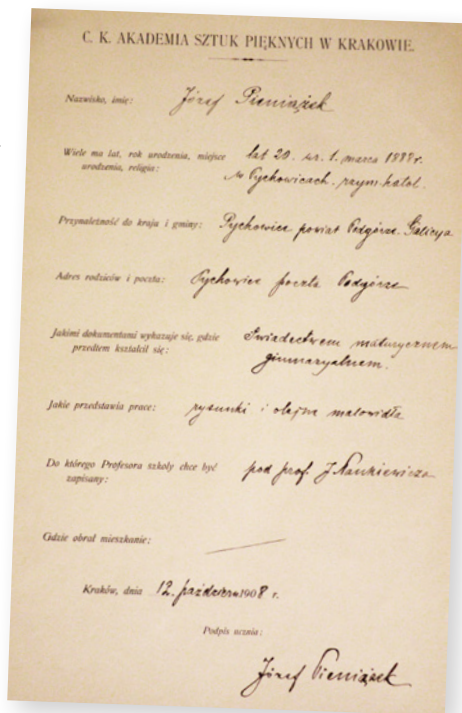 C. K. AKADEMIA SZTUK PIĘKNYCH W KRAKOWIE.
Nazwisko, imię: Józef Pieniążek
Wiele ma lat, rok urodzenia, miejsce lat 20. ur. 1. marca 1888 r.
urodzenia, religia: w Pychowicach. rzym. katol.
Przynależność do kraju i gminy: Pychowice powiat Podgórze. Galicya
Adres rodziców i poczta: Pychowice poczta Podgórze
Jakimi dokumentami wykazuje się, gdzie Świadectwem maturycznem
przedtem kształcił się: gimnazyalnem.
Jakie przedstawia prace: rysunki i olejne malowidła
Do którego Profesora szkoły chce być pod prof. J.
zapisany:
Gdzie obrał mieszkanie:
Kraków, dnia 12. październ 1908 r.
Podpis ucznia:
Józef Pieniążek